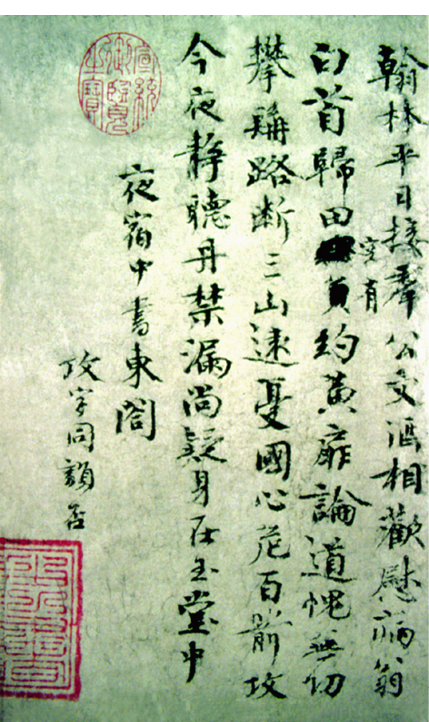 翰林平日接羣公文酒相歡慰病翁
白首歸田負約黃扉論道愧無功
空有
攀髯路斷三山遠憂國心危百箭攻
今夜靜聽丹禁漏尚疑身在玉堂中
夜宿中書東閤
攻字同韻否
宣統御覽之寶